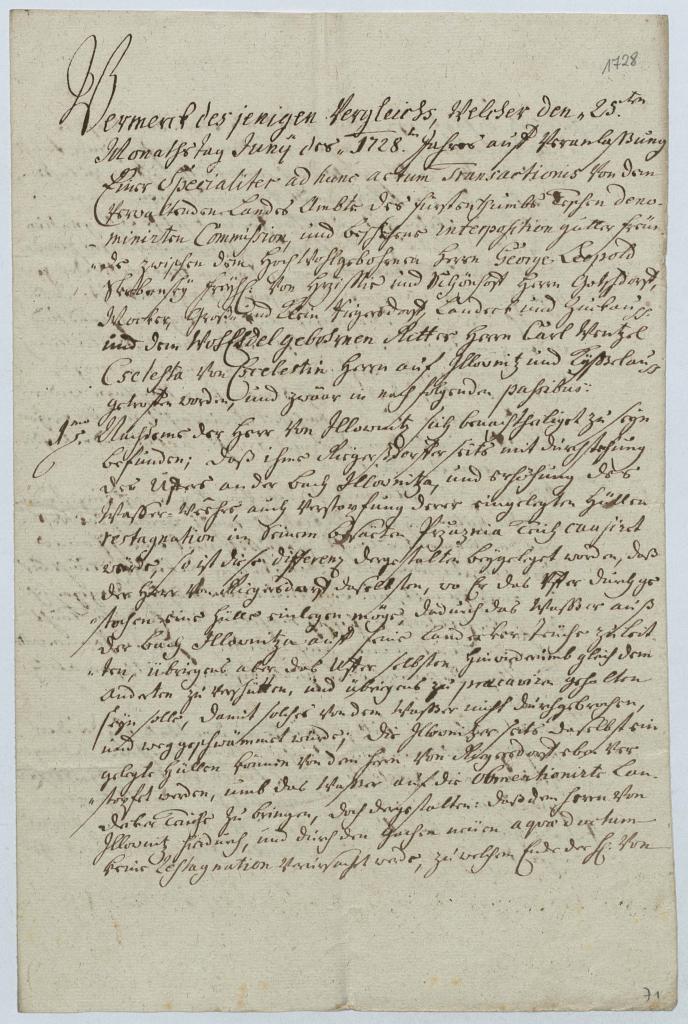 1728
Vermerck desjenigen Vergleichs, Welcher den 25.ten
Monathstag Junÿ des 1728.ten Jahres auf Veranlaßung
Einer Specialiter ad hunc actum Transactionis Von dem
Verwaltenden Landes Ambte des Fürstenthumbs Teschen deno-
minirten Commission, und beschehene interposition gutter freün-
de zwischen dem Hochwohlgebohrnen Herrn George Leopold
Skrbenskÿ Freÿh: Von Hrzistie und Schönhoff Herrn Gotschdorff,
Mocker, Groß und Klein Rügersdorf, Landeck und
und dem WohlEdelgebohrnen Ritter Herrn Carl Wentzel
Cselesta Von Cselestin Herrn auf Illownitz und
getroffen worden, und zwaar in nachfolgenden passibus:
1.mo Nachdeme der Herr Von Illownitz sich benachtheiliget zu seÿn
befunden; daß ihme Riegersdorffer seits mit durchstechung
des Uffers an der bach Illownitza, und erhöhung des
Wasser-Wöhres, auch Verstopfung derer eingelegten Hüllen
restagnation in seinem besacten Teich causiret
würde, so ist diese differenz dergestalten beÿgeleget worden, daß
der Herr Von Riegersdorff daselbsten, wo Er das Uffer durchge
stochen eine Hülle einlegen möge, dadurch das Wasser auß
der bach Illownitza auff seine Landecker Teüche zu leit
ten, übrigens aber das Uffer selbsten hinwiederumb gleich dem
anderten zu verschütten, und übrigens zu praecaviren gehalten
seÿn solle, damit solches von dem Wasser nicht durchgebrochen,
und weggeschwämmet würde; die Illownitzer seits daselbst ein
gelegte Hüllen können von dem Herrn Von Riegersdorff eben Ver
stopfet werden, umb das Wasser auf die Obmentionirte Lan-
decker Teüche zu bringen, doch dergestalten: daß dem Herrn Von
Illownitz hiedurch, und durch den neüen aquae ductum
keine restagnation Verursacht werde, zu welchem Ende der H: Von
71